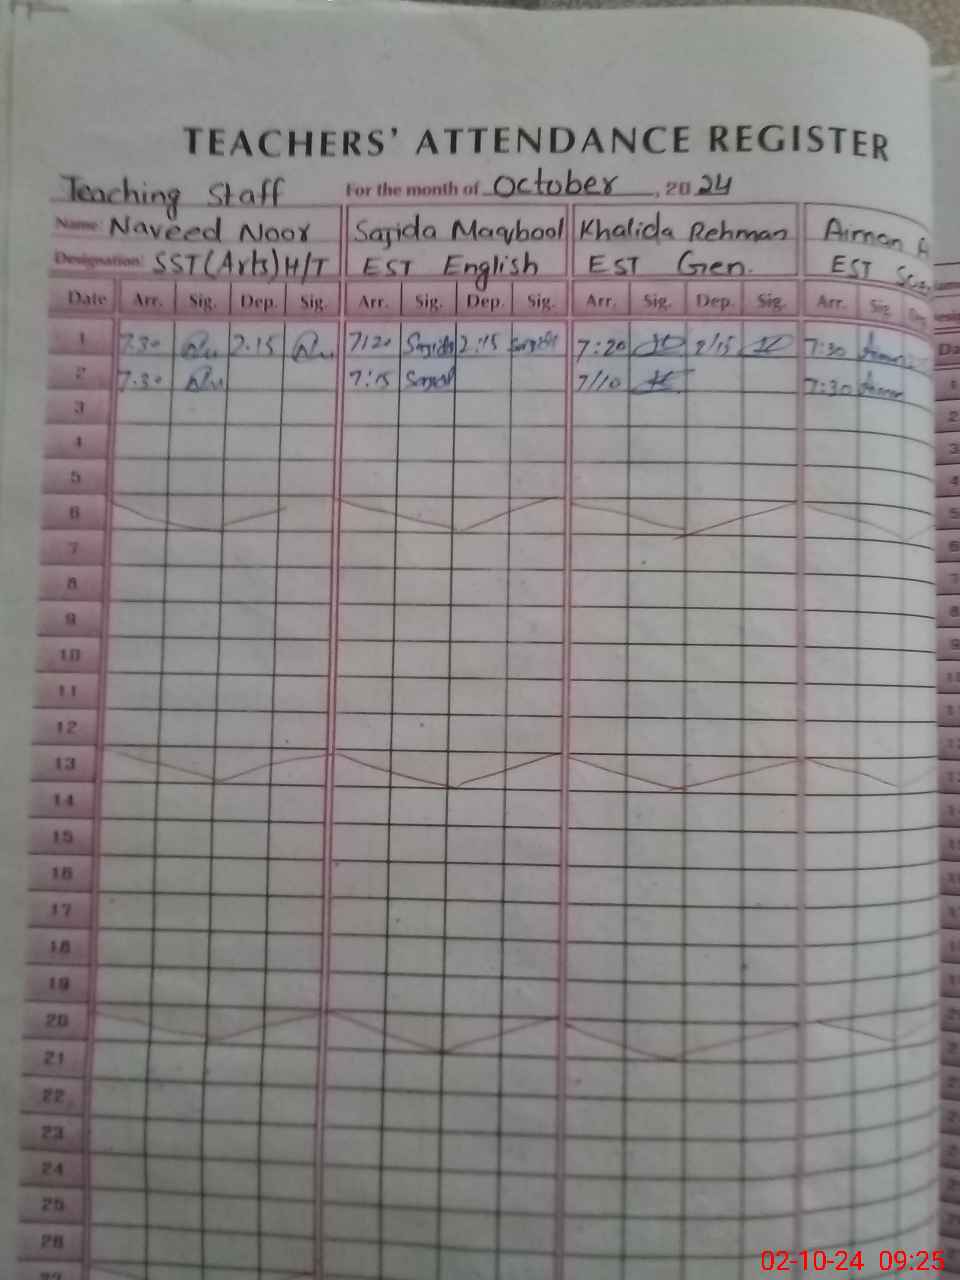 TEACHERS' ATTENDANCE REGISTER
Teaching Staff For the month of October, 2024
Name: Naveed Noor Sajida Maqbool Khalida Rehman Aiman
Designation: SST(Arts)H/T EST English EST Gen. EST
Date Arr. Sig. Dep. Sig. Arr. Sig. Dep. Sig. Arr. Sig. Dep. Sig. Arr. Sig
1 7.30 2.15 7:20 Sajida 2:15 Sajida 7:20 2/15 7:30
2 7.30 7:15 Sajida 7/10 7:30
3
4
5
6
7
8
9
10
11
12
13
14
15
16
17
18
19
20
21
22
23
24
25
26
02-10-24 09:25